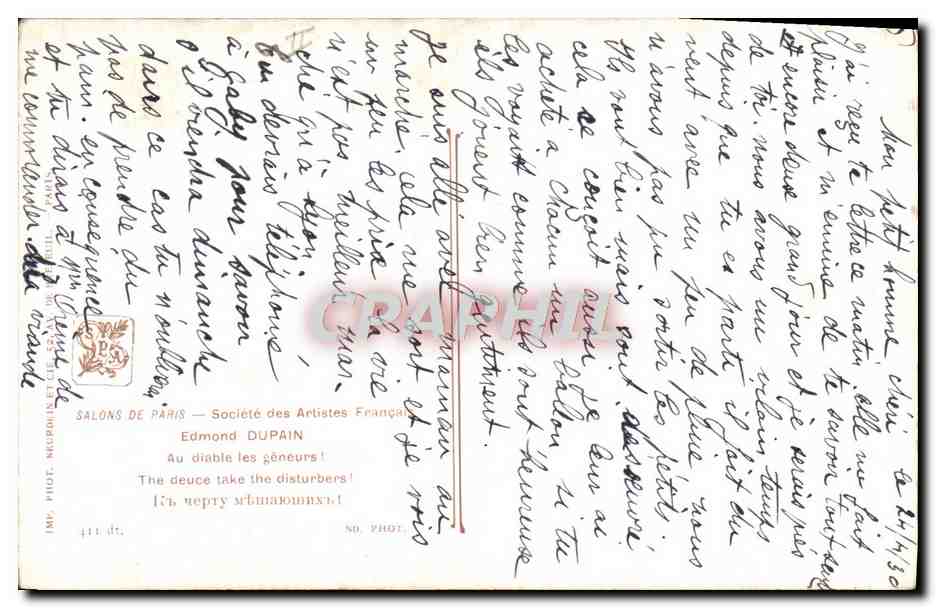 le 24/4/30
Mon petit homme chéri
J'ai reçu ta lettre ce matin elle me fait
plaisir et m'ennuie de te savoir tout seul
et encore deux grand jour et je serais près
de toi. nous avons un vilain temps
depuis que tu es parti il fait du
vent avec un peu de pluie nous
n'avons pas pu sortir les petits
Ils vont bien mais sont
cela ce conçoit aussi je leur ai
acheté à chacun un ballon si tu
les voyait comme ils sont heureuse
ils jouent bien gentiment.
Je suis allé avec maman au
marché, cela me sort et je vois
un peu les prix la vie
n'est pas meilleur mar-
ché qu'à Lyon.
Tu devrais téléphoné
à Gaby pour savoir
s'il viendra dimanche
dans ce cas tu n'oublierai
pas de prendre du
pain en conséquence
et tu dirais à Mme Cheine de
me commander de la viande
SALONS DE PARIS — Société des Artistes Français
Edmond DUPAIN
Au diable les gêneurs!
The deuce take the disturbers!
Къ черту мѣшающихъ!
411 dt.
ND. PHOT.
IMP. PHOT. NEURDEIN ET CIE, 52, AV. DE BRETEUIL. — PARIS
CRAPHIL